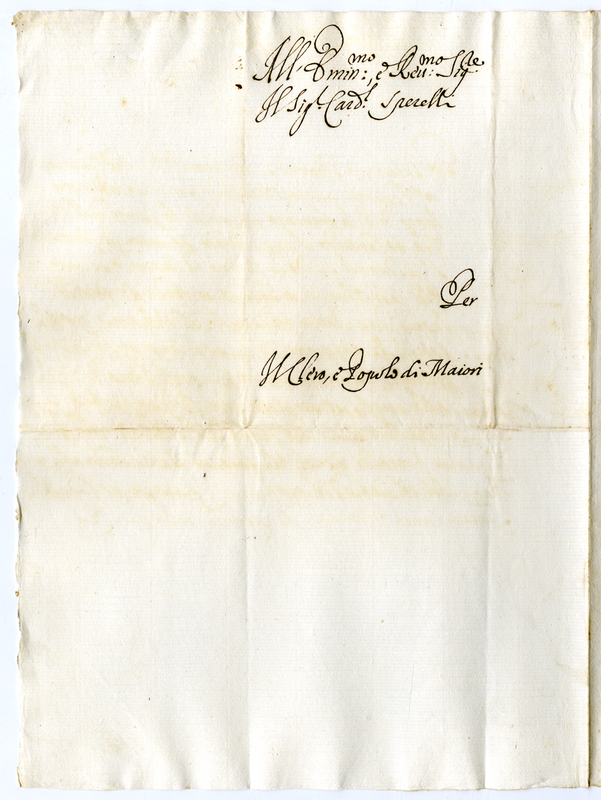 All' Emin:mo, e Reu:mo Sig.re
Il Sig.r Card.l Sperelli
Per
Il Clero, e Popolo di Maiori